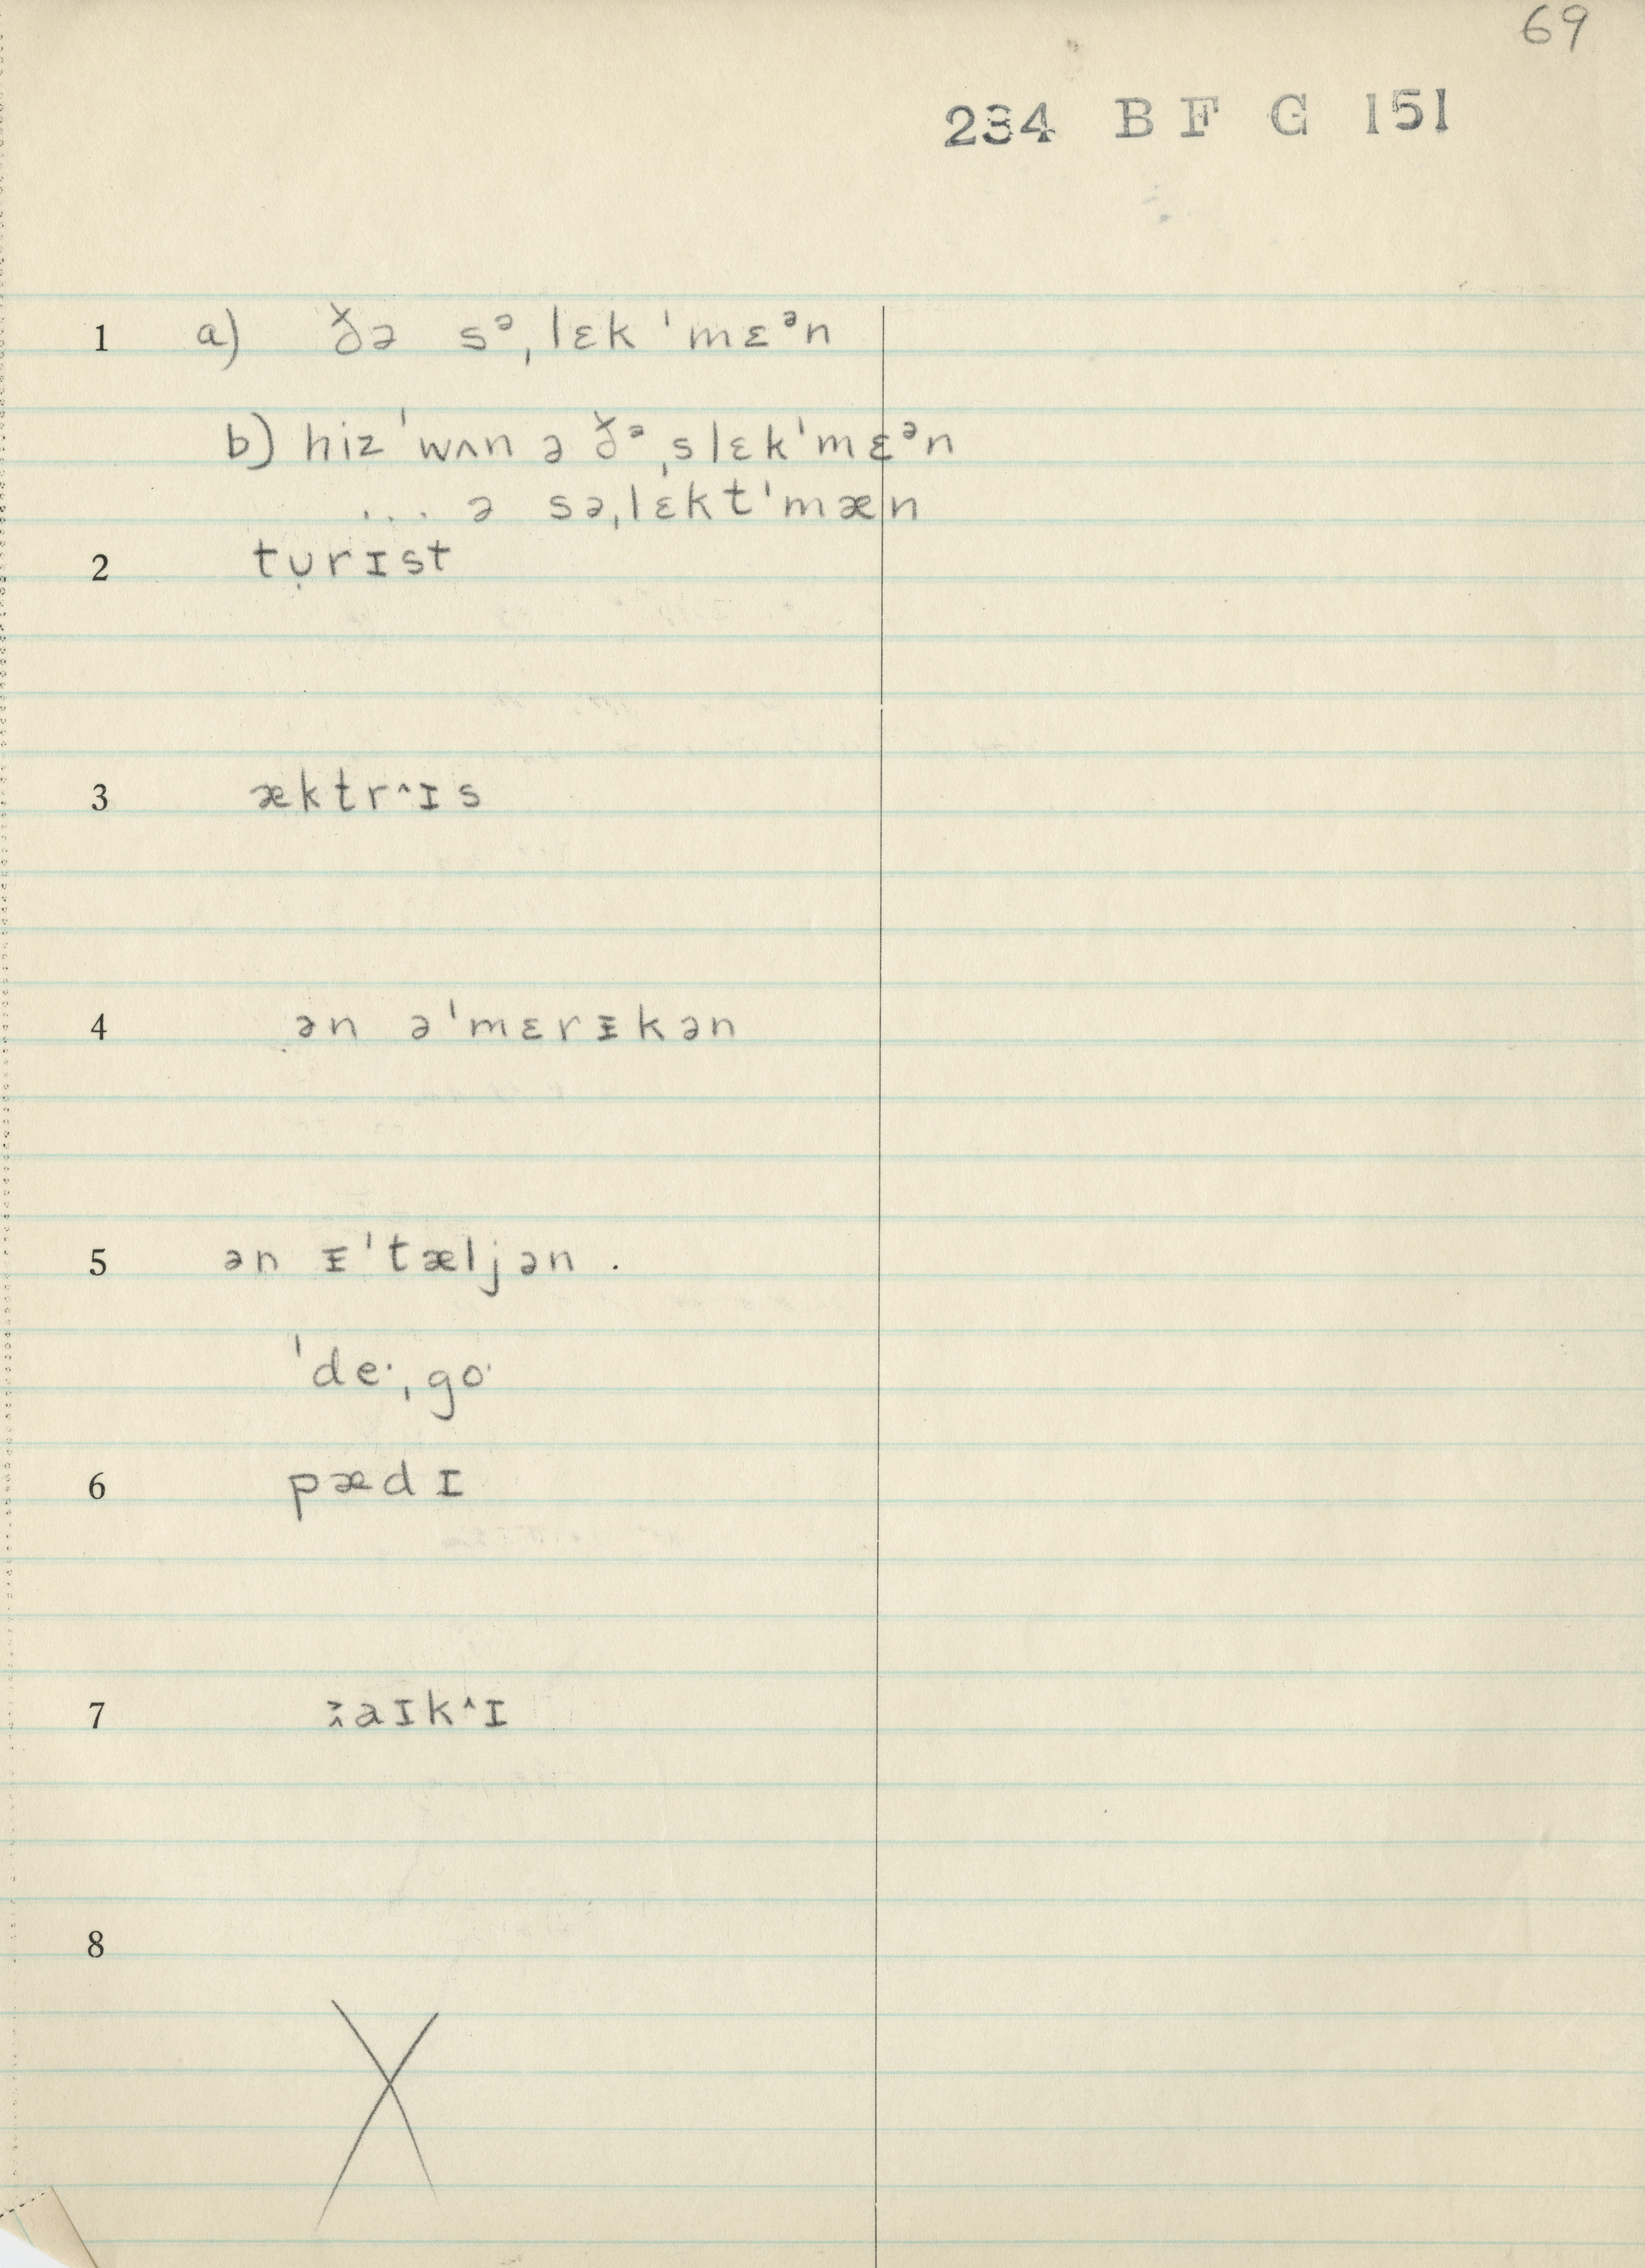 69
234 B F G 151
1 a) ðə sᵊˌlɛk ˈmɛᵊn
b) hiz ˈwʌn ə ðᵊ ˌslɛkˈmɛᵊn
... ə səˌlɛktˈmæn
2 tụrɪst
3 æktr˄ɪs
4 ən əˈmɛrᵻkən
5 ən ᵻˈtæljən .
ˈde·ˌgo·
6 pædɪ
7 aɪk˄ɪ
8
X